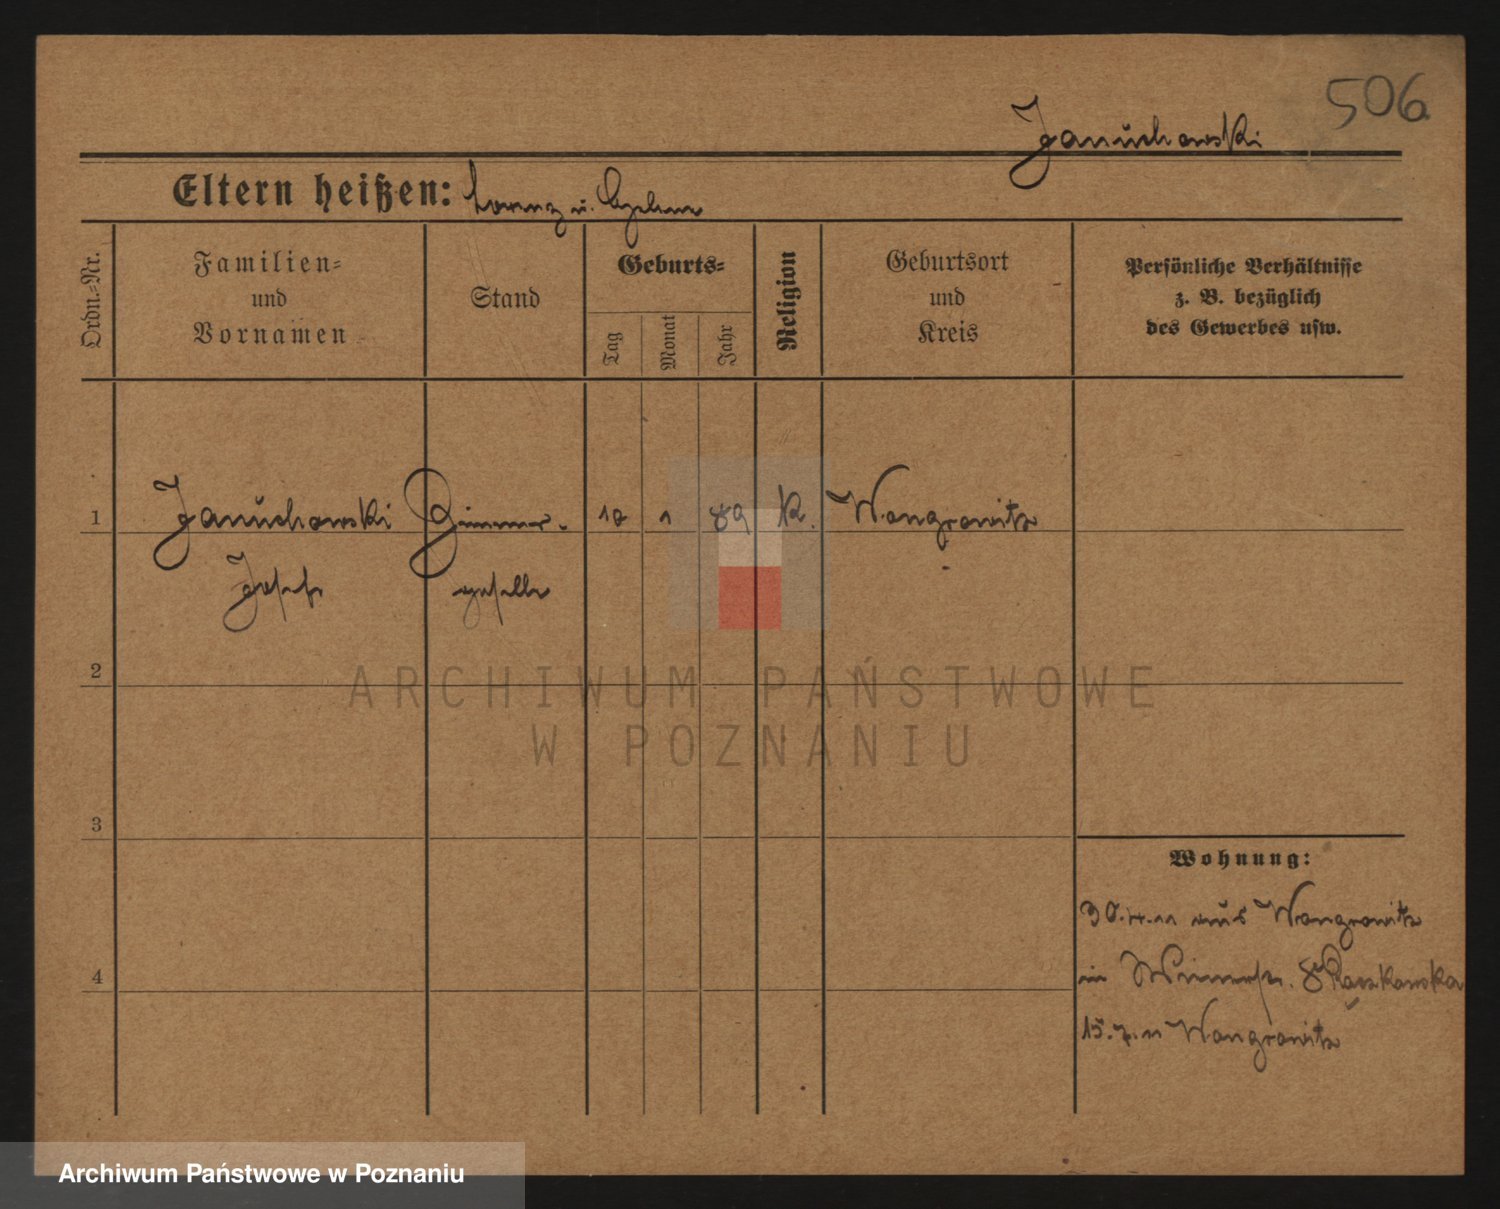 506
Januchowski
Eltern heißen: Lorenz u.
Ordn.=Nr.
Familien=
und
Vornamen
Stand
Geburts=
Tag
Monat
Jahr
Religion
Geburtsort
und
Kreis
Persönliche Verhältnisse
z. B. bezüglich
des Gewerbes usw.
1 Januchowski Zimmer- 10 1 89 K. Wongrowitz
Josef geselle
2
ARCHIWUM PAŃSTWOWE
W POZNANIU
3
Wohnung:
30.4.11 aus Wongrowitz
in 8
4
15.7.11 Wongrowitz
Archiwum Państwowe w Poznaniu